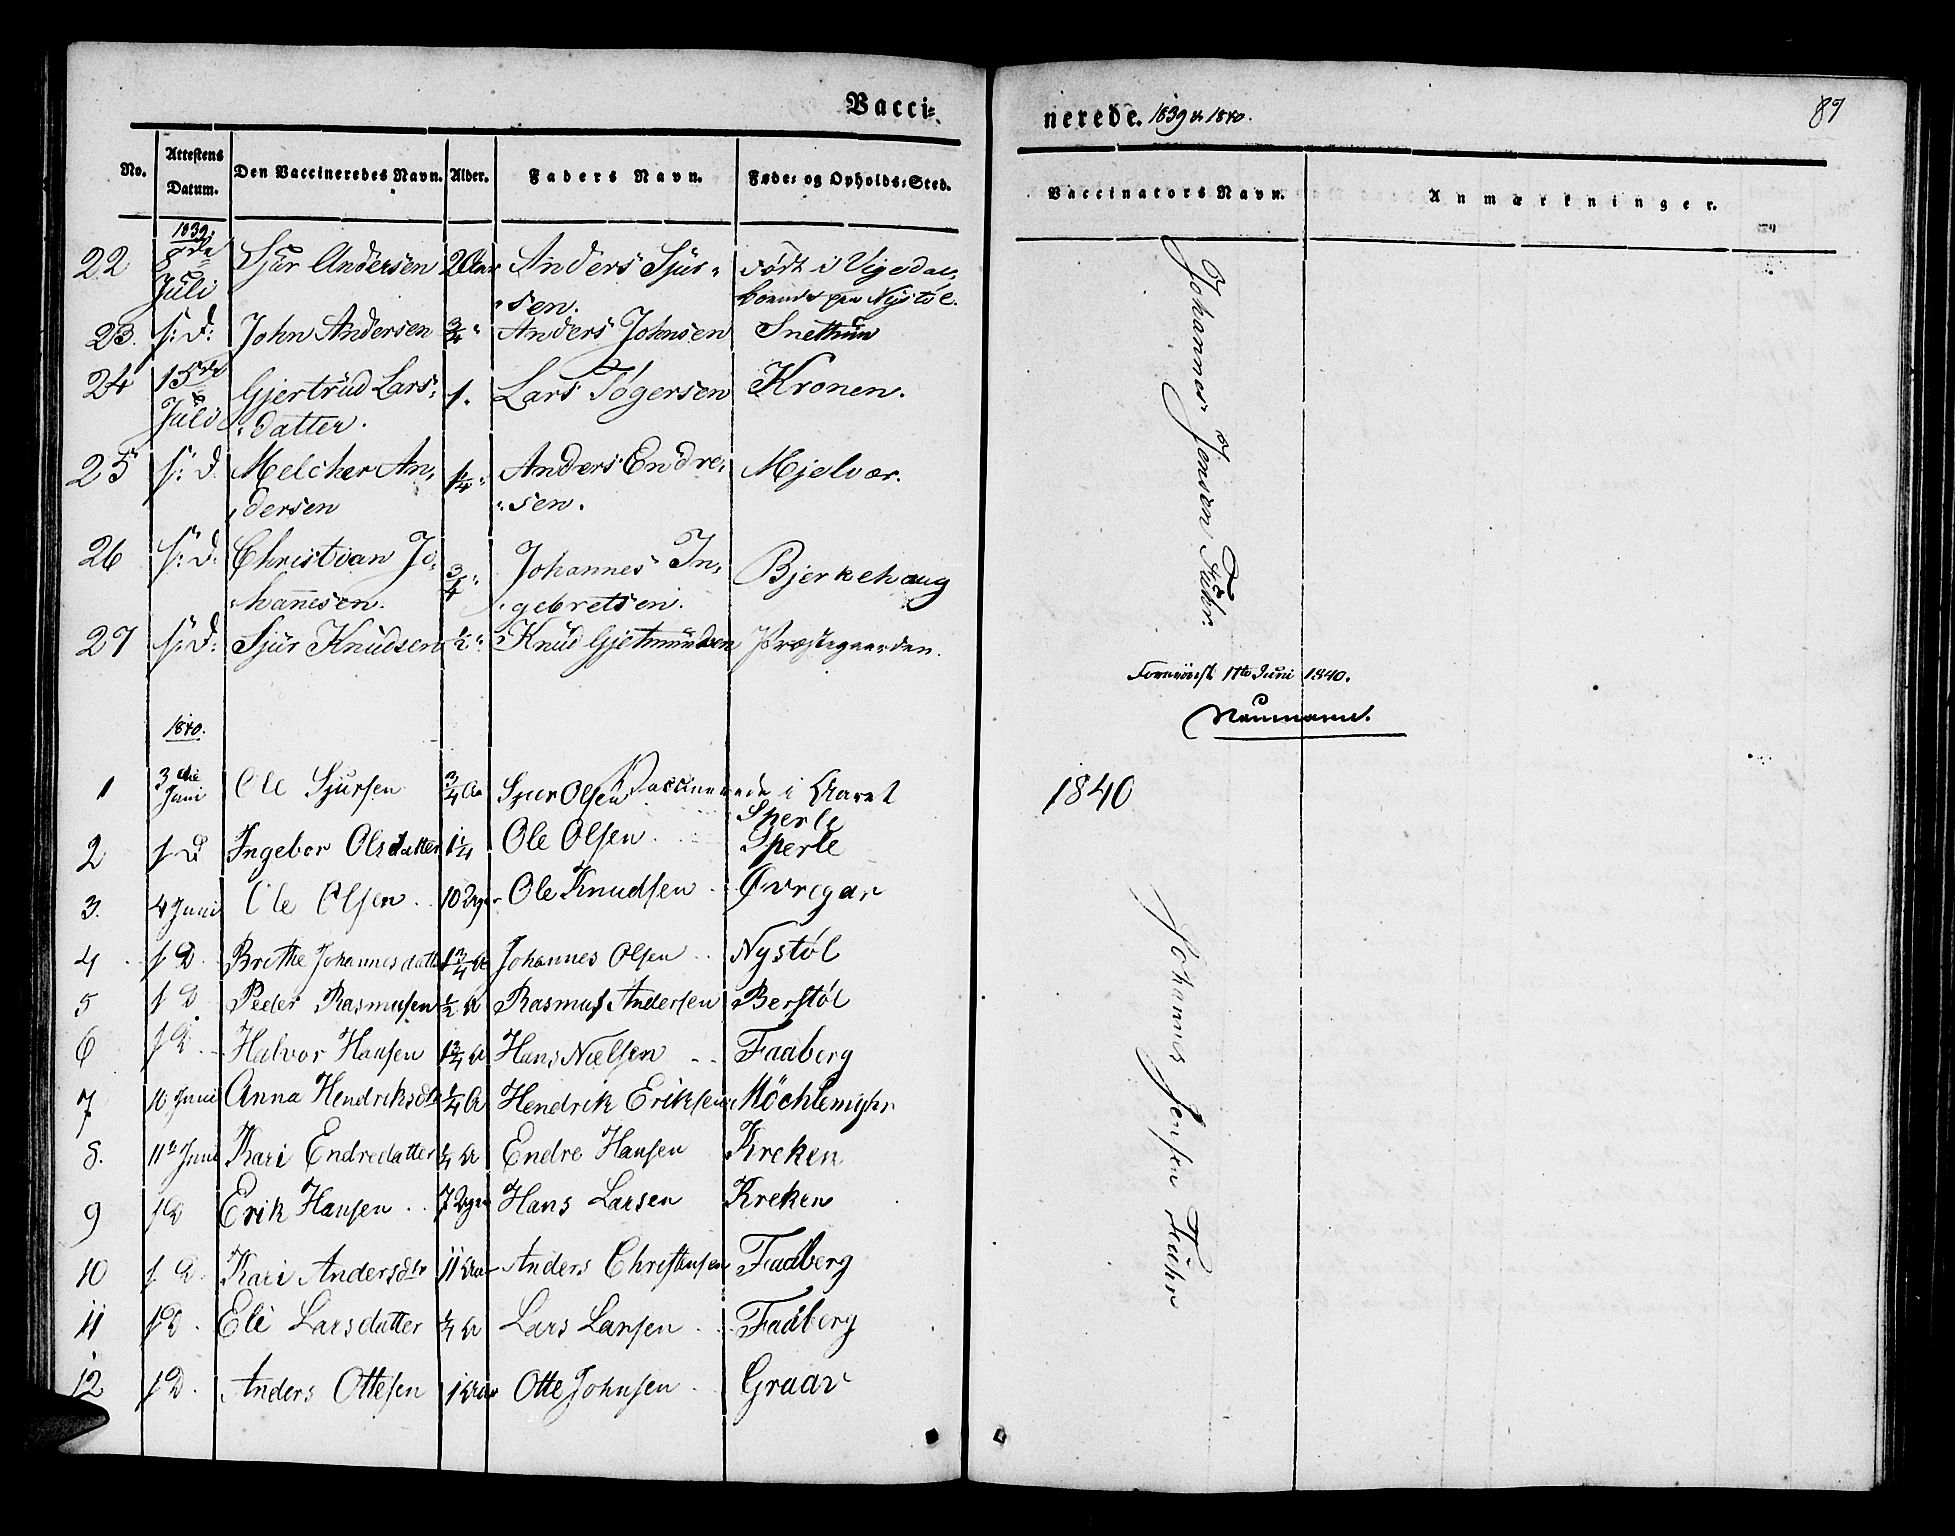 Vacci=
nerede. 1839 & 1840.
87
No. Attestens Datum. Den Vaccineredes Navn. Alder. Faders Navn. Føde= og Opholds=Sted. Vaccinators Navn. Anmærkninger.
1839.
22 8de Juli Sjur Andersen 2 Aar Anders Sjur=sen. født i Vigedal, boende paa Nystøl.
23. s: d: John Andersen 3/4 " Anders Johnsen Snethun
24 15de Juli Gjertrud Lars=datter. 1. Lars Tøgersen Kronen.
25 s: d. Melcher An=dersen 1/4 " Anders Endre=sen. Mjelvær.
26 s: d: Christian Jo=hannesen. 3/4 " Johannes In=gebretsen. Bjerkehaug
27 s: d: Sjur Knudsen 1/2 " Knud Gjetmundsen Præstegaarden.
Johannes Jensen Fuhr.
11te Juni 1840.
Neumann.
1840.
Vaccinerede i Aaret 1840
1 3die Juni Ole Sjursen 3/4 Aa Sjur Olsen Sperle
2 s d Ingebor Olsdatter 1 1/4 Ole Olsen Sperle
3. 4 Juni Ole Olsen 10 Uger Ole Knudsen Øvregar
4 s D. Brithe Johannesdatt 1 3/4 A Johannes Olsen Nystøl
5 s D Peder Rasmusen 1/2 A Rasmus Andersen Berstøl
6 s D Halvor Hansen 1 3/4 A Hans Nielsen Faaberg
7 10 Juni Anna Hendriksdtr 1/4 A Hendrik Eriksen
8. 11te Juni Kari Endredatter 1/4 A Endre Hansen Kreken
9 s D Erik Hansen 7 Uger Hans Larsen Kreken
10 s. D. Kari Andersdtr 11 Aar Anders Christensen Faaberg
11 s D. Eli Larsdatter 1/4 A Lars Larsen Faaberg
12 s D. Anders Ottesen 1 Aar Otte Johnsen Graav
Johannes Jensen Fuhr